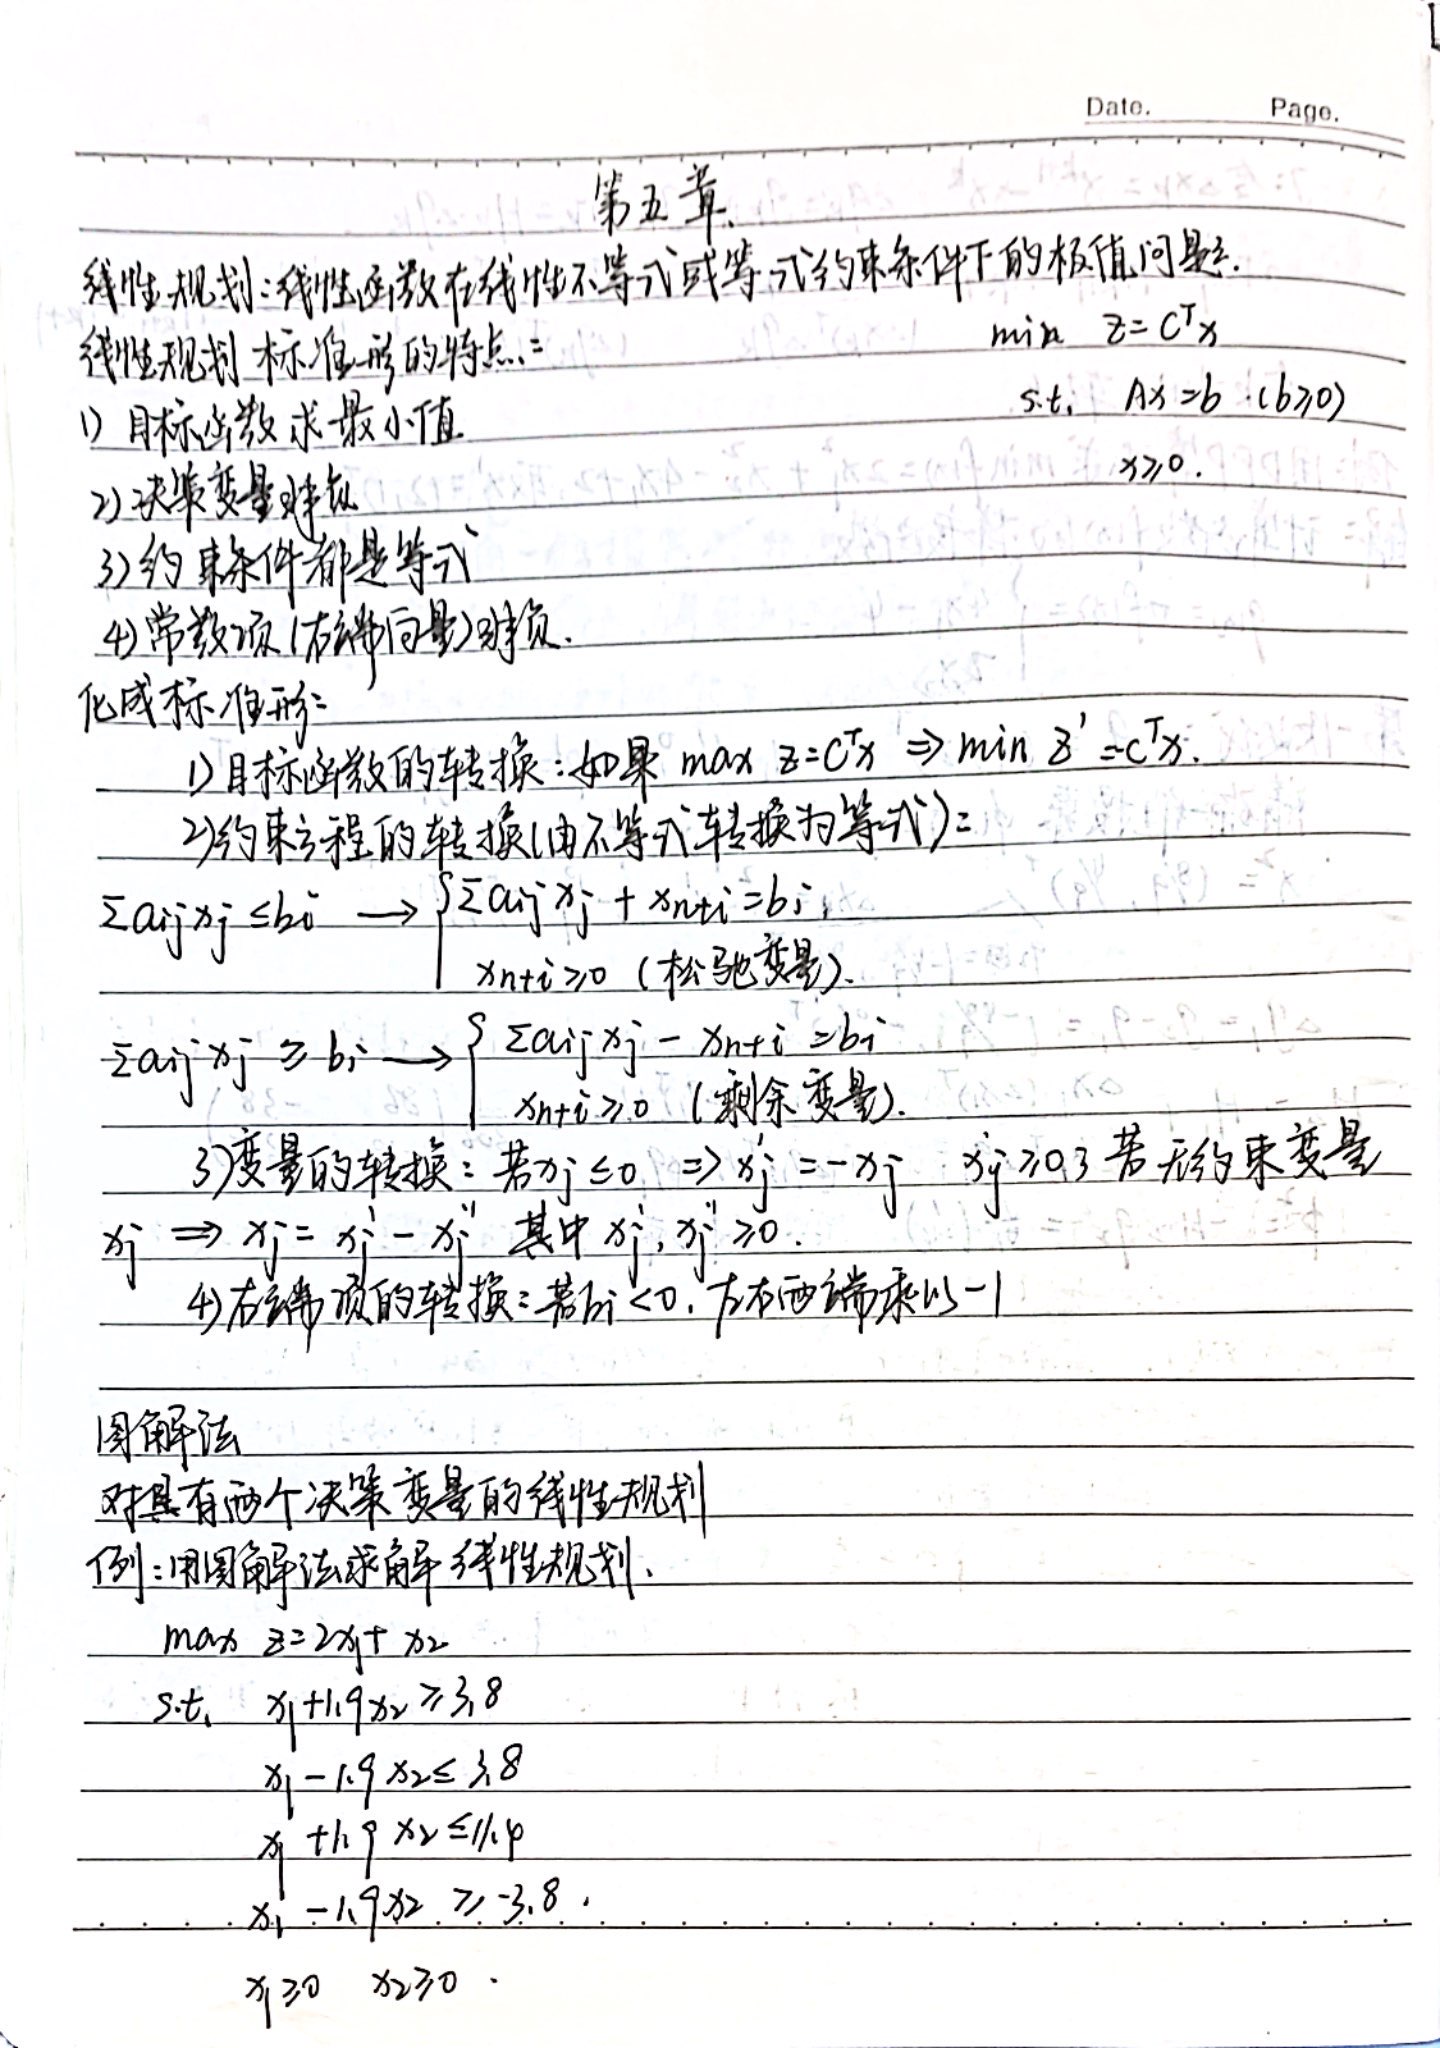 Date. Page.
第五章.
线性规划:线性函数在线性不等式或等式约束条件下的极值问题.
线性规划标准形的特点: min z=CᵀX
1) 目标函数求最小值 s.t. Ax=b (b≥0)
2) 决策变量非负 x≥0.
3) 约束条件都是等式
4) 常数项(右端向量)非负.
化成标准形:
1) 目标函数的转换:如果 max z=Cᵀx ⇒ min z'=-Cᵀx.
2) 约束方程的转换(由不等式转换为等式):
Σaijxj ≤bi → { Σaijxj + xn+i =bi,
xn+i≥0 (松弛变量).
Σaijxj ≥ bi → { Σaijxj - xn+i =bi
xn+i≥0 (剩余变量).
3) 变量的转换:若xj≤0 ⇒ xj'=-xj xj'≥0; 若无约束变量
xj ⇒ xj= xj' - xj'' 其中 xj', xj''≥0.
4) 右端项的转换:若bi<0, 左右两端乘以-1
图解法
对具有两个决策变量的线性规划
例:用图解法求解线性规划.
max z=2x1+x2
s.t. x1+1.9x2≥3.8
x1-1.9x2≤3.8
x1+1.9x2≤11.4
x1-1.9x2 ≥-3.8.
x1≥0 x2≥0.